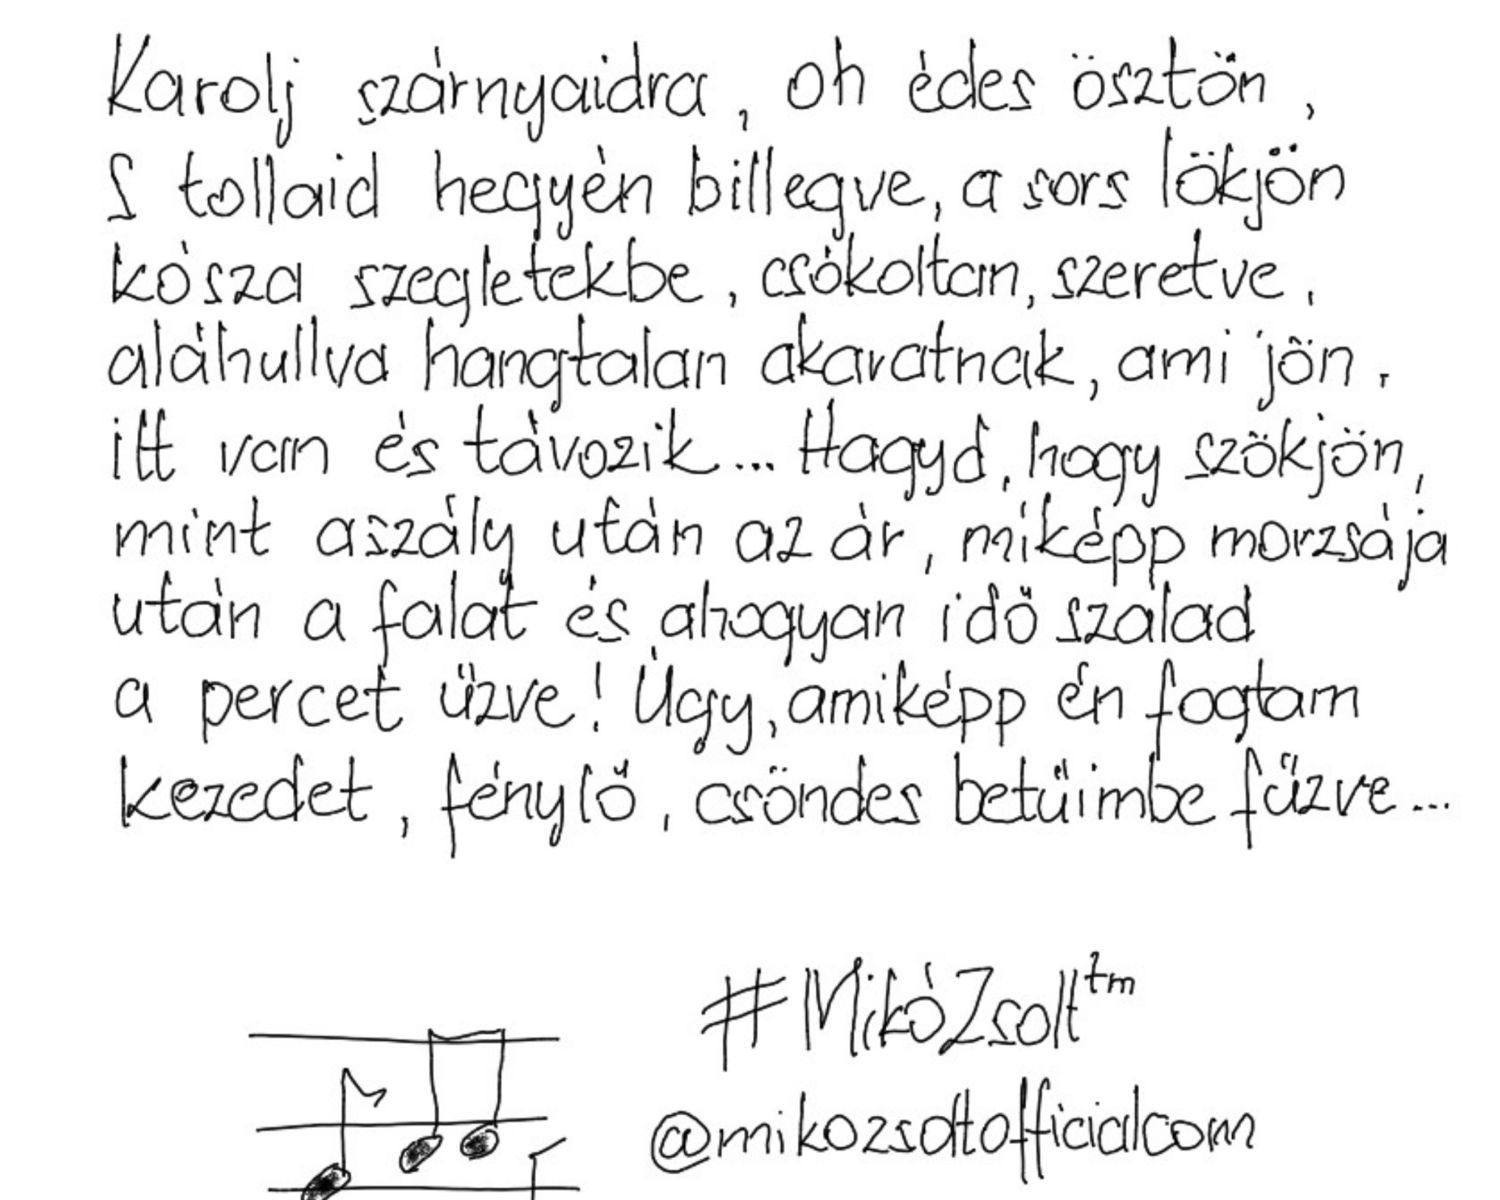 Karolj szárnyaidra, oh édes ösztön,
S tollaid hegyén billegve, a sors lökjön
kósza szegletekbe, csókoltan, szeretve,
aláhullva hangtalan akaratnak, ami jön,
itt van és távozik... Hagyd, hogy szökjön,
mint aszály után az ár, miképp morzsája
után a falat és ahogyan idő szalad
a percet űzve! Úgy, amiképp én fogtam
kezedet, fénylő, csöndes betűimbe fűzve...
#MikóZsolt™
@mikozsoltofficialcom